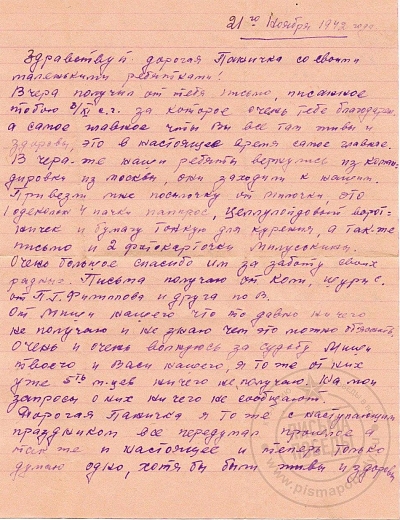 21го Ноября 1942 года
Здравствуй дорогая Паничка со своими
маленькими ребятками!
Вчера получил от тебя письмо, писанное
тобою 8/XI с.г. за которое очень тебе благодарен.
а самое главное что Вы все там живы и
здоровы, это в настоящее время самое главное.
Вчера-же наши ребята вернулись из коман-
дировки из Москвы, они заходили к нашим.
Привезли мне посылочку от Милочки, это
1 одеколон 4 пачки папирос, целлулойдовый ворот-
ничек и бумагу тонкую для курения, а так-же
письмо и 2 фотокарточки Милусокины.
Очень большое спасибо им за заботу своих
родных. Письма получаю от Кати, Шуры С.
от П.Г. Филиппова и друга по В.
От Миши нашего что то давно ничего
не получаю и не знаю чем это можно
Очень и очень волнуюсь за судьбу Миши
твоего и Васи нашего, я то же от них
уже 5ть м-цев ничего не получаю. На мои
запросы о них ничего не сообщают.
Дорогая Паничка я то же с наступающим
праздником все передумал прошлое а
так же и настоящее и теперь только
думаю одно, хотя бы были живы и здоровы
ПИСЬМА ПОБЕДЫ
www.pismapo